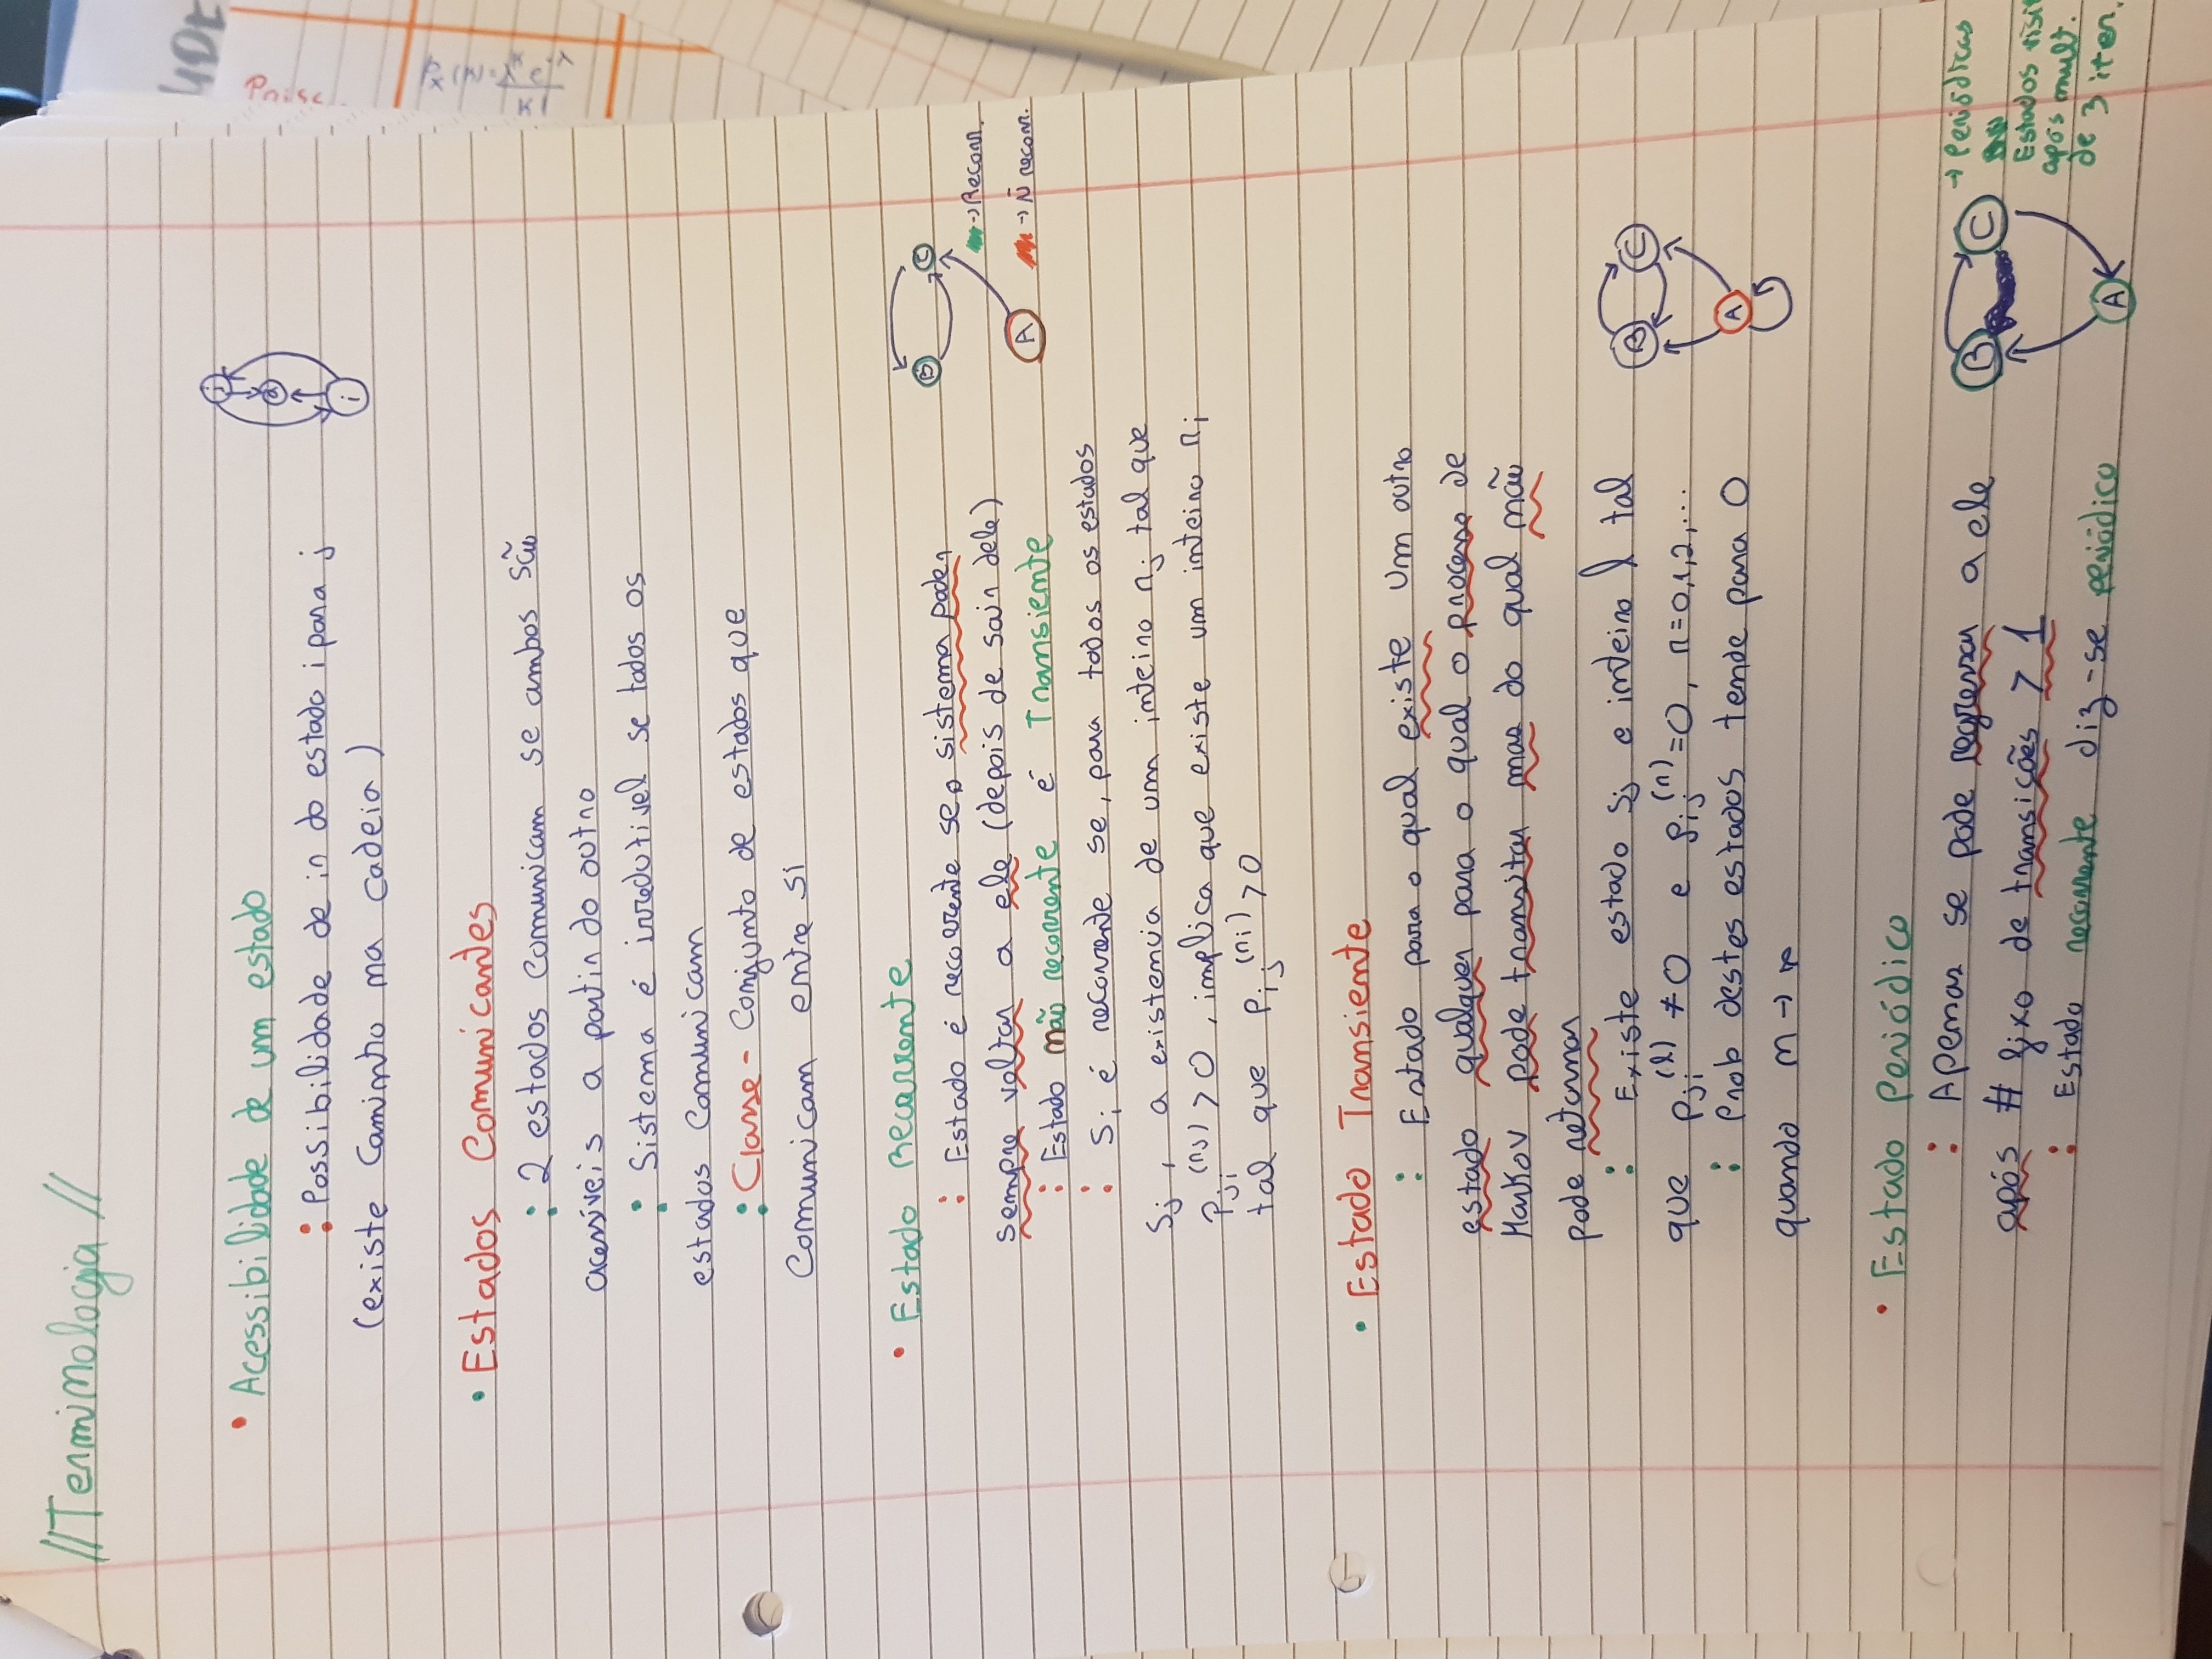 //Terminologia//
• Acessibilidade de um estado
: Possibilidade de ir do estado i para j
(existe Caminho na cadeia)
j
a
i
• Estados Comunicantes
: 2 estados comunicam se ambos são
acessíveis a partir do outro
: Sistema é irredutivel se todos os
estados Comunicam
: Classe - Conjunto de estados que
Comunicam entre si
• Estado Recorrente
: Estado é recorrente se o sistema poder
sempre voltar a ele (depois de sair dele)
: Estado não recorrente é Transiente
: Si é recorrente se, para todos os estados
Sj, a existencia de um inteiro nj tal que
Pji^(nj) > 0, implica que existe um inteiro ni
tal que Pij^(ni) > 0
B C
→ Recorr.
A → Ñ recorr.
• Estado Transiente
: Estado para o qual existe um outro
estado qualquer para o qual o processo de
Markov pode transitar mas do qual não
pode retornar
: Existe estado Sj e inteiro l tal
que Pji^(l) ≠ 0 e Pij^(n) = 0, n=0,1,2,...
: Prob destes estados tende para 0
quando n → ∞
B C
A
• Estado Periódico
: Apenas se pode regressar a ele
após # fixo de transições > 1
: Estado recorrente diz-se periódico
B C
A
→ Periódicos
Estados visi
após mult.
de 3 iter.
4DE
Px(N=
λ^K e^-λ
K!